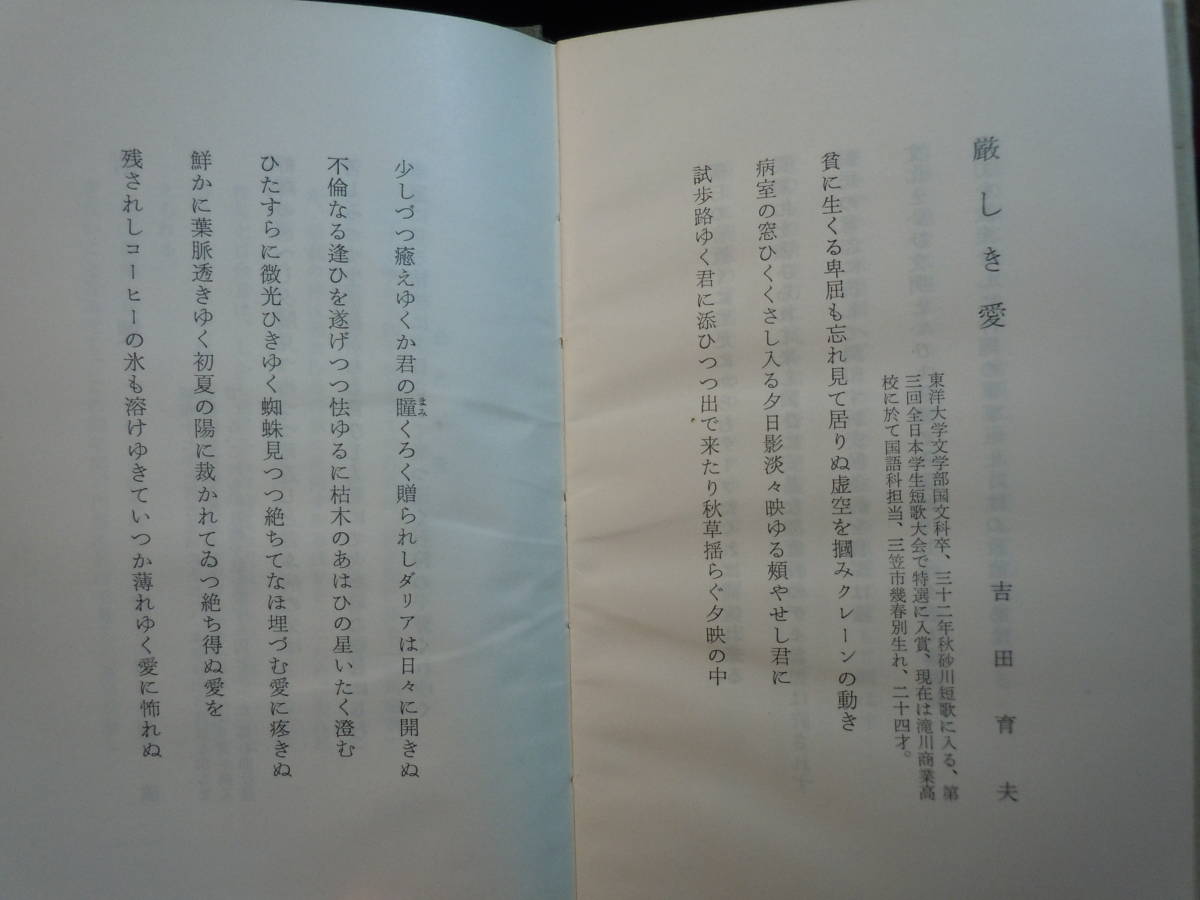 厳しき愛
吉田育夫
東洋大学文学部国文科卒、三十二年秋砂川短歌に入る、第
三回全日本学生短歌大会で特選に入賞、現在は滝川商業高
校に於て国語科担当、三笠市幾春別生れ、二十四才。
貧に生くる卑屈も忘れ見て居りぬ虚空を摑みクレーンの動き
病室の窓ひくくさし入る夕日影淡々映ゆる頰やせし君に
試歩路ゆく君に添ひつつ出で来たり秋草揺らぐ夕映の中
少しづつ癒えゆくか君の瞳まみくろく贈られしダリアは日々に開きぬ
不倫なる逢ひを遂げつつ怯ゆるに枯木のあはひの星いたく澄む
ひたすらに微光ひきゆく蜘蛛見つつ絶ちてなほ埋づむ愛に疼きぬ
鮮かに葉脈透きゆく初夏の陽に裁かれてゐつ絶ち得ぬ愛を
残されしコーヒーの氷も溶けゆきていつか薄れゆく愛に怖れぬ